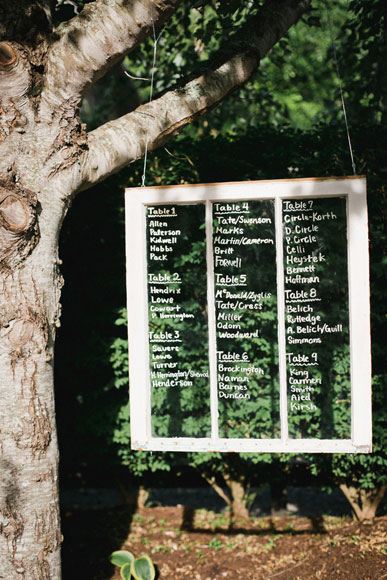 Table 1
Allen
Paterson
Kidwell
Hobbs
Pack
Table 2
Hendrix
Lowe
Cowart
P. Herrington
Table 3
Savers
Lowe
Turner
H. Herrington/Sherrod
Henderson
Table 4
Tate/Swenson
Marks
Martin/Cameron
Britt
Forwell
Table 5
McDonald/Zyglis
Tate/Cress
Miller
Odom
Woodward
Table 6
Brockington
Naman
Barnes
Duncan
Table 7
Circle-Korth
D. Circle
P. Circle
Celli
Heystek
Bennett
Hoffman
Table 8
Belich
Rutledge
A. Belich/Guill
Simmons
Table 9
King
Carmen
Smith
Aied
Kirsh